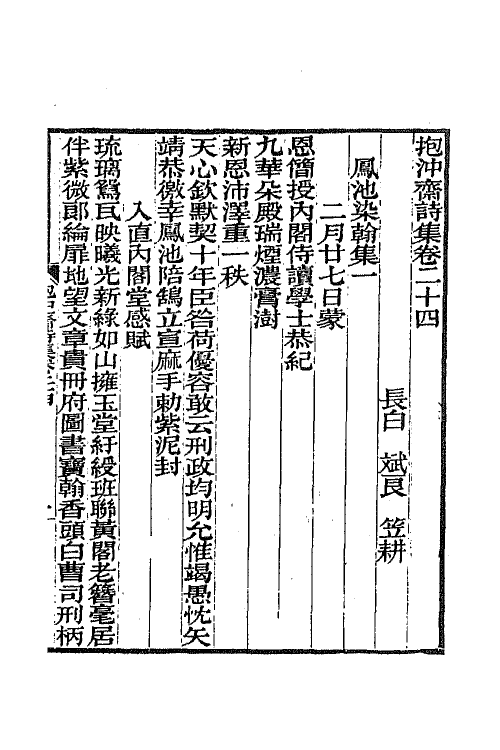 抱沖齋詩集卷二十四
長白 斌良 笠耕
鳳池染翰集一
二月廿七日蒙
恩僃授內閣侍讀學士恭紀
九華朵殿瑞煙濃膏澍
新恩沛澤重一秩
天心欽默契十年臣咎荷優容敢云刑政均明允惟竭愚忱矢
靖恭徼幸鳳池陪鵠立宣麻手勅紫泥封
入直內閣堂感賦
琉璃鴛瓦映曦光新綠如山擁玉堂紆綬班聯黃閣老簪毫居
伴紫微郞綸扉地望文章貴冊府圖書寶翰香頭白曹司刑柄